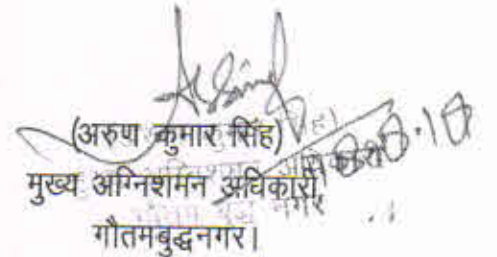 (अरुण कुमार सिंह)
मुख्य अग्निशमन अधिकारी,
गौतमबुद्धनगर।